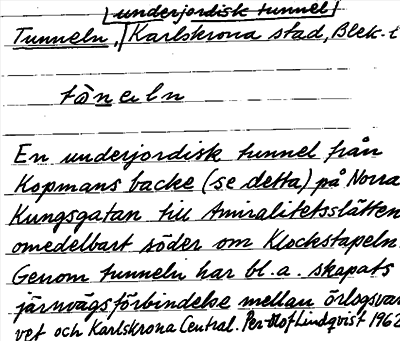 underjordisk tunnel
Tunneln, Karlskrona stad, Blek-
tò̀neln
En underjordisk tunnel från
Kopmans backe (se detta) på Norra
Kungsgatan till Amiralitetsslätten
omedelbart söder om Klockstapeln.
Genom tunneln har bl.a. skapats
järnvägsförbindelse mellan örlogsvar
vet och Karlskrona Central. Per-Olof Lindqvist 1962